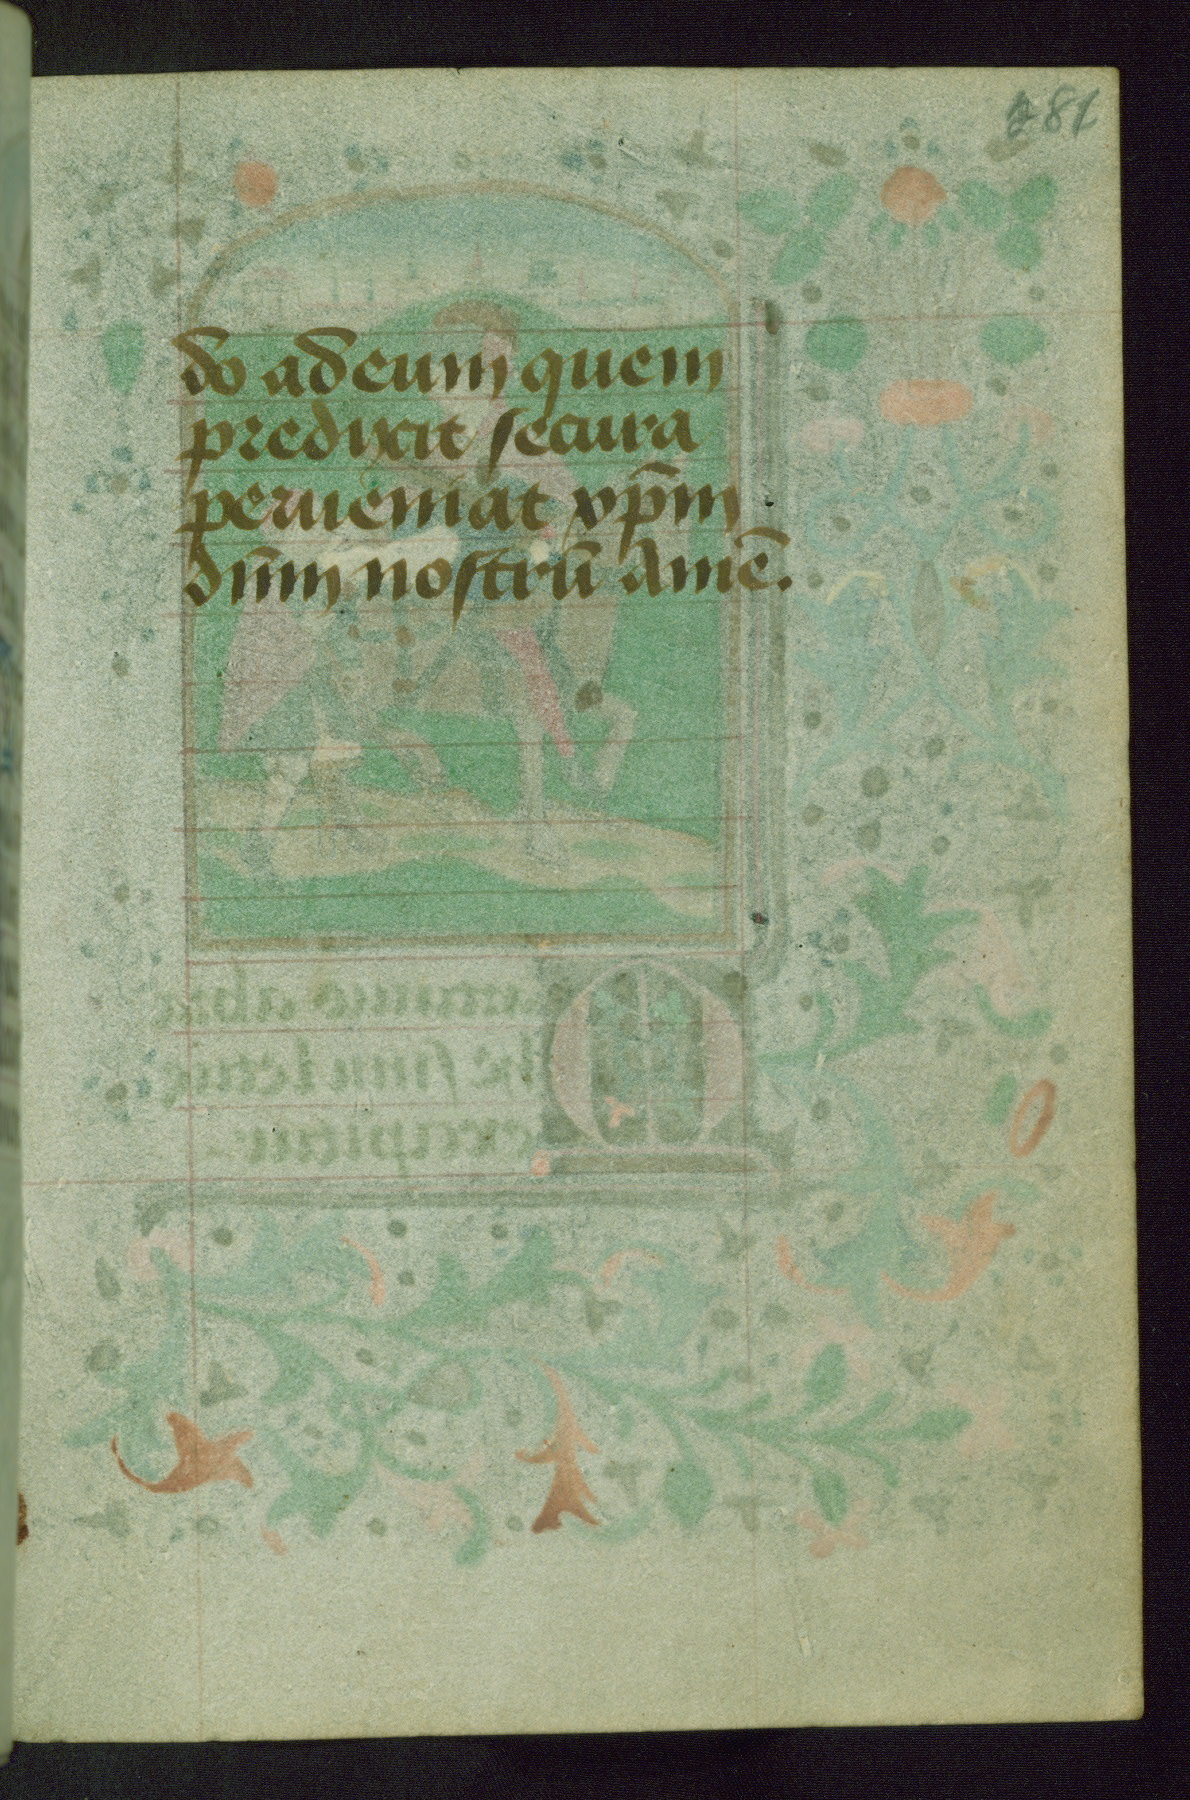 181
do ad eum quem
predixit secura
perueniat xp̄m
dn̄m nostrū Amē.